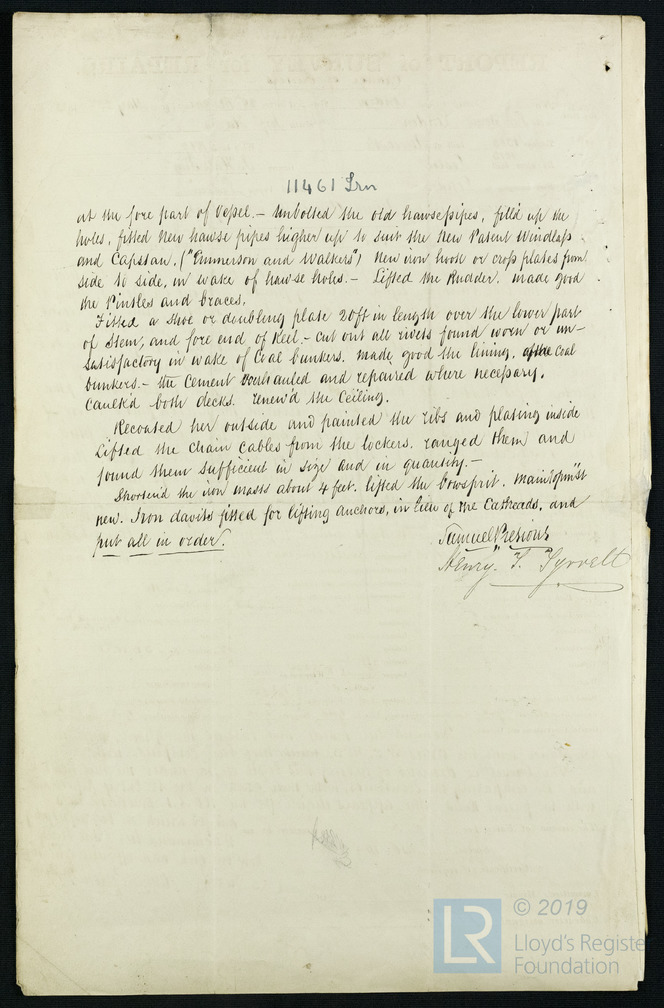 REPORT of SURVEY for REPAIRS
11461 Irn
at the fore part of Vessel. - Unbolted the old hawsepipes, fill'd up the
holes, fitted New hawse pipes higher up to suit the New Patent Windlass
and Capstan. ("Emmerson and Walkers") New iron hook or crop plates from
side to side, in wake of hawse holes. - Lifted the Rudder. made good
the Pintles and braces.
Fitted a Shoe or doubling plate 20ft in length over the lower part
of Stem, and fore end of Keel. - Cut out all rivets found worn or un-
satisfactory in wake of Coal bunkers. made good the lining, of the Coal
bunkers. - the Cement overhauled and repaired where necessary.
Caulk'd both decks. renew'd the Ceiling.
Recoated her outside and painted the ribs and plating inside
Lifted the Chain Cables from the lockers. ranged them and
found them Sufficient in size and in quantity. -
Shorten'd the iron masts about 4 feet. lifted the bowsprit. Main topm'st
new. Iron davits fitted for lifting anchors, in lieu of the Catheads, and
put all in order.
Samuel Pretious
Henry. J. Tyrrell
LR © 2019
Lloyd's Registe
Foundation